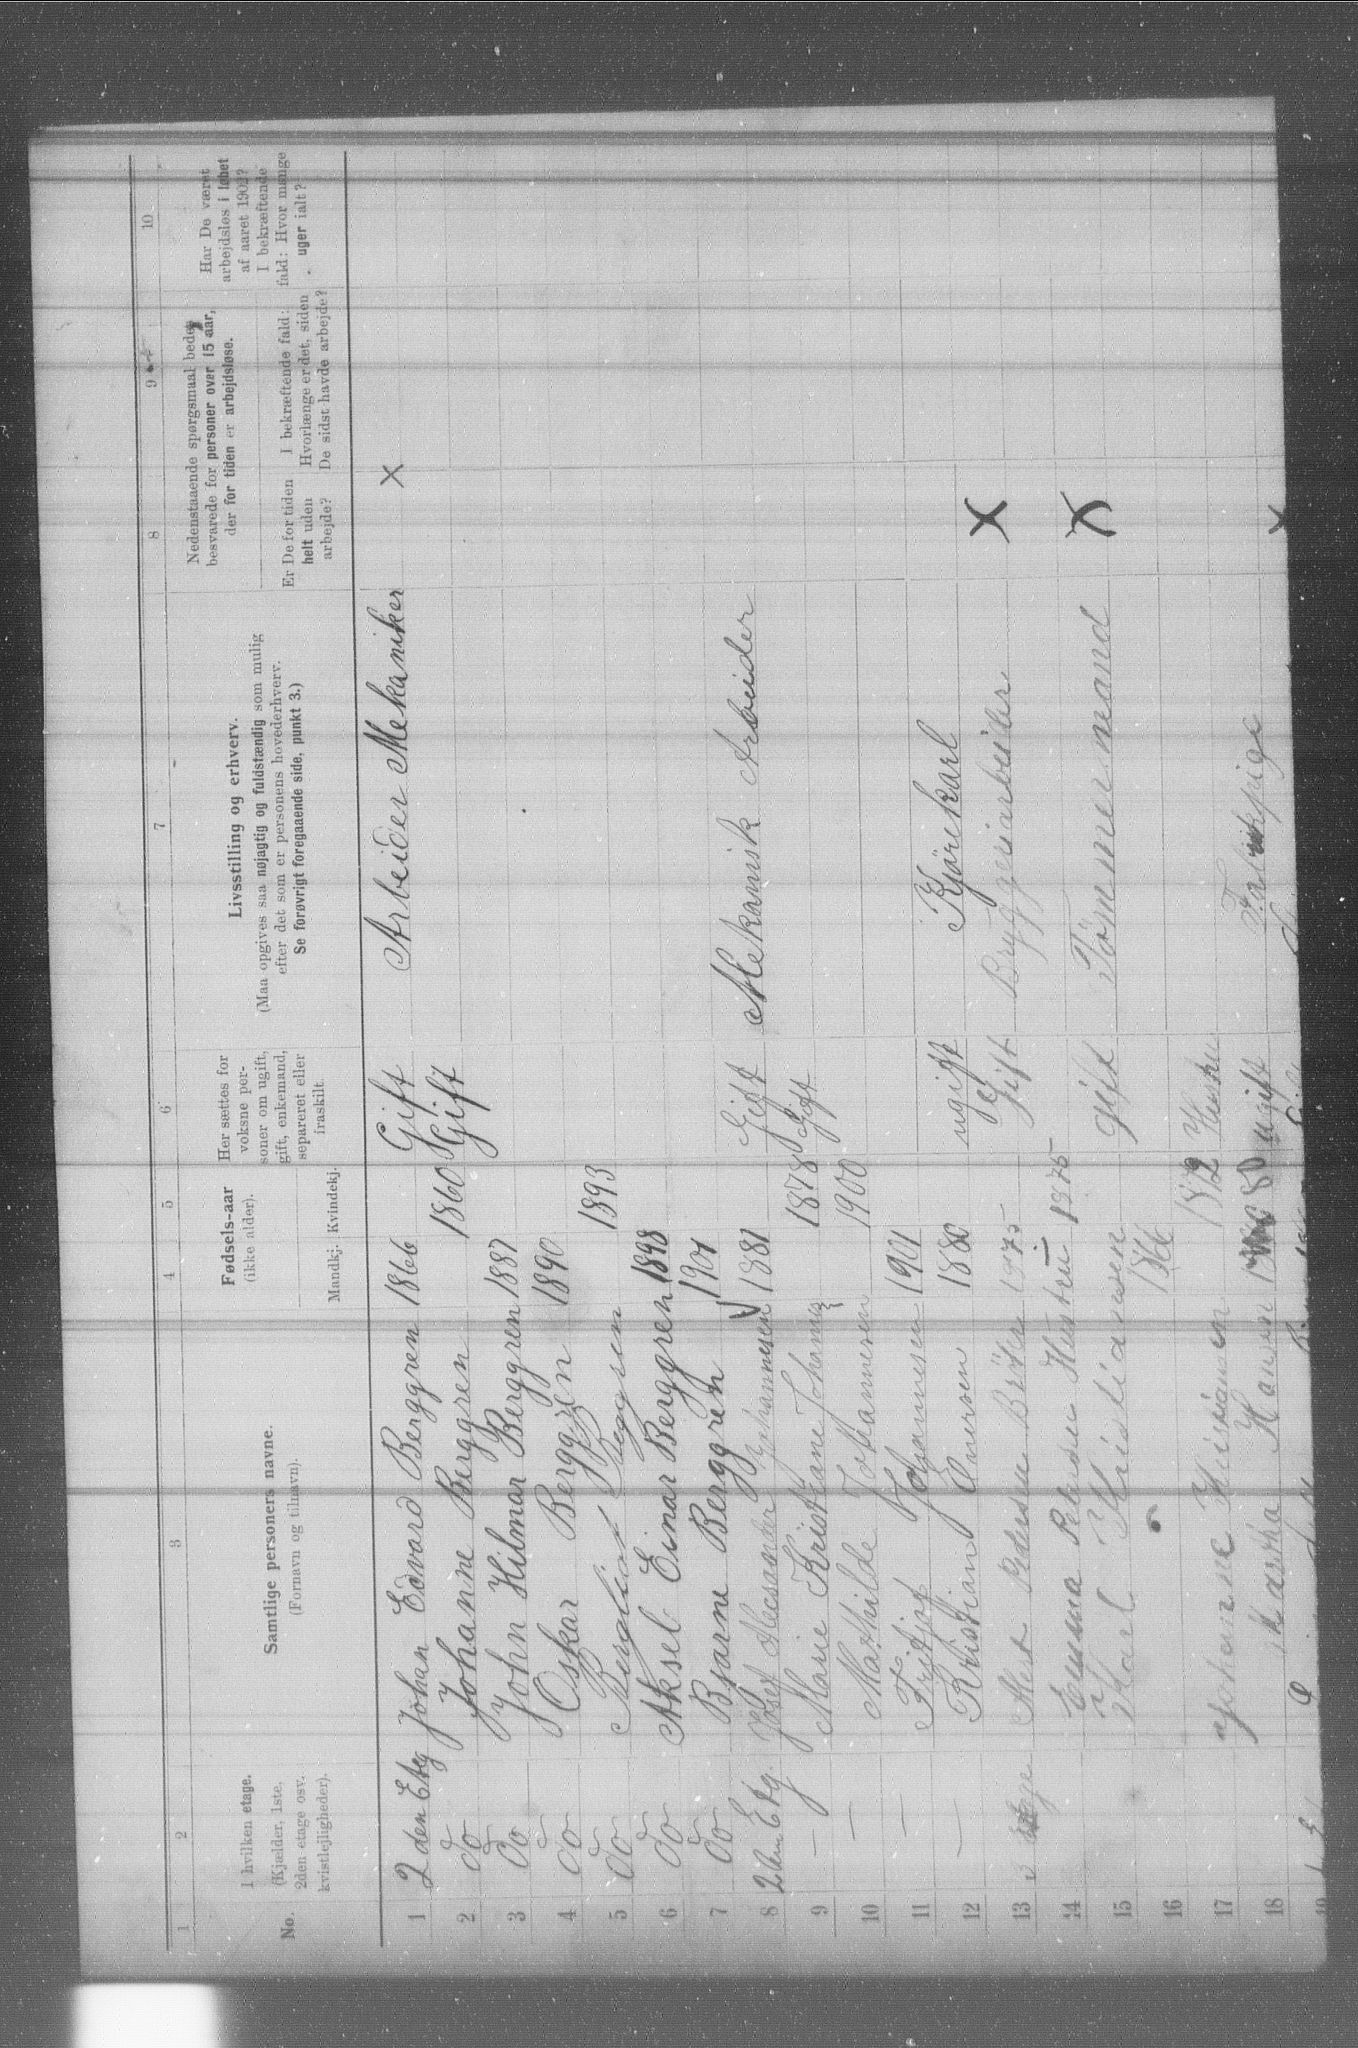 1 2 3 4 5 6 7 8 9 10
No.
I hvilken etage.
(Kjælder, 1ste,
2den etage osv.
kvistlejligheder).
Samtlige personers navne.
(Fornavn og tilnavn).
Fødsels-aar
(ikke alder).
Mandkj. Kvindekj.
Her sættes for
voksne per-
soner om ugift,
gift, enkemand,
separeret eller
fraskilt.
Livsstilling og erhverv.
(Maa opgives saa nøjagtig og fuldstændig som mulig
efter det som er personens hovederhverv.
Se forøvrigt foregaaende side, punkt 3.)
Nedenstaaende spørgsmaal bedes
besvarede for personer over 15 aar,
der for tiden er arbejdsløse.
Er De for tiden
helt uden
arbejde?
I bekræftende fald:
Hvorlænge er det, siden
De sidst havde arbejde?
Har De været
arbejdsløs i løbet
af aaret 1902?
I bekræftende
fald: Hvor mange
uger ialt?
1 2den Etg Johan Edvard Berggren 1866 Gift Arbeider Mekaniker x
2 do Johanne Berggren 1860 Gift
3 do John Hilmar Berggren 1887
4 do Oskar Berggren 1890
5 do Bergliot Berggren 1893
6 do Aksel Einar Berggren 1898
7 do Bjarne Berggren 1901
8 2den Etg. Josef Alecsander Johannesen 1881 Gift Mekanisk Arbeider
9 — Marie Kristiane Johannes 1878 Gift
10 — Mathilde Johannesen 1900
11 — Fritjof Johannesen 1901
12 — Kristian Onersen 1880 ugift Kjørekarl x
13 3 Pedersen 1875 Gift Bryggeriarbeider
14 Emma Pedersen Hustru 1875 x
15 Karl Kristiansen gift Tömmermand
16 1866
17 Johanne Kristiansen 1872 Hustru
18 Hansen 80 ugift Fabrikpige x
19